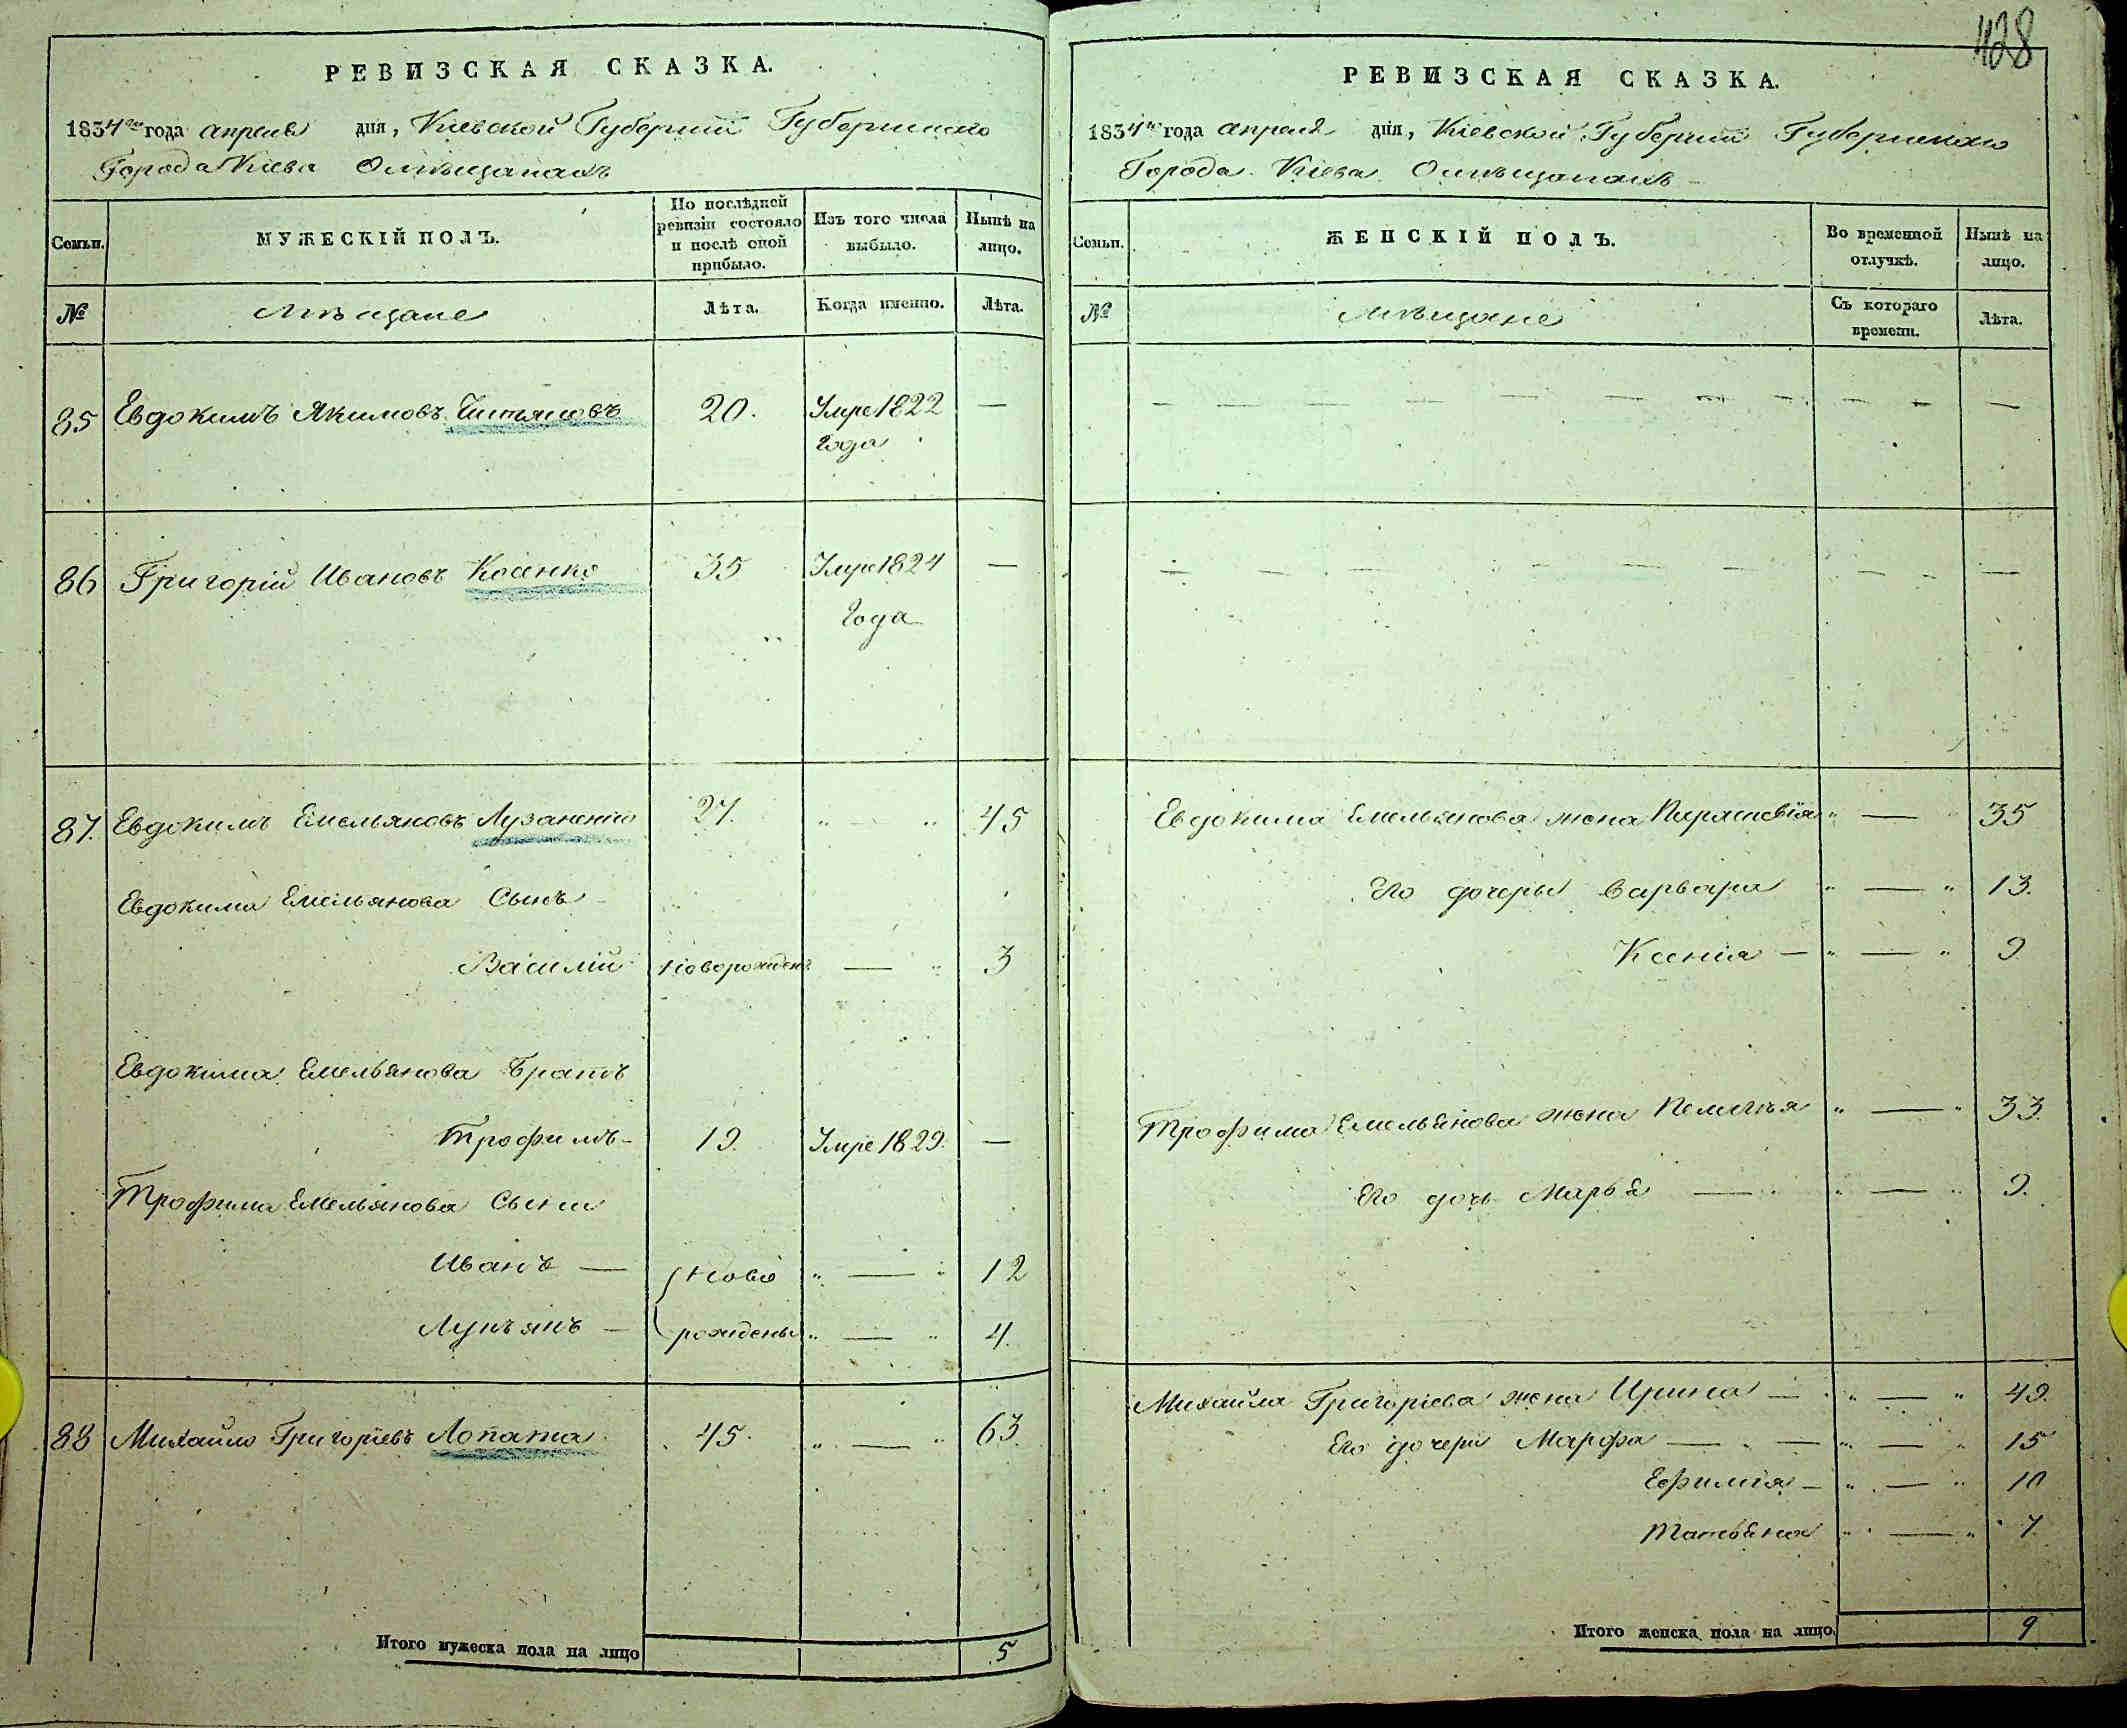 РЕВИЗСКАЯ СКАЗКА.
1834го года апреля дня, Киевской Губерніи Губернскаго
Города Кіева О мѣщанахъ
Семьи.
МУЖЕСКІЙ ПОЛЪ.
По послѣдней ревизіи состояло и послѣ оной прибыло.
Изъ того числа выбыло.
Нынѣ на лицо.
№
Мѣщане
Лѣта.
Когда именно.
Лѣта.
85 Евдокимъ Якимовъ 20. Умре 1822 —
Года
86 Григорій Ивановъ Косенко 35 Умре 1824 —
Года
87. Евдокимъ Емельяновъ 27. " — " 45
Евдокима Емельянова Сынъ
Василій новорожденъ — " 3
Евдокима Емельянова Братъ
Трофимъ — 19. Умре 1829. —
Трофима Емельянова Сыны
Иванъ — ново " — " 12
Лукъянъ — рождены " — " 4.
88 Михайло Григоріевъ Лопата 45. " — " 63.
Итого мужеска пола на лицо 5
428
РЕВИЗСКАЯ СКАЗКА.
1834го года апреля дня, Кіевской Губерніи Губернскаго
Города Кіева О мѣщанахъ
Семьи.
ЖЕНСКІЙ ПОЛЪ.
Во временной отлучкѣ.
Нынѣ на лицо.
№
Мѣщане
Съ котораго времени.
Лѣта.
Евдокима Емельянова жена Параскевія " — " 35
Его дочеры Варвара " — " 13.
Ксенія — " — " 9
Трофима Емельянова жена Пелагѣя " — " 33.
Его дочь Марья — " — " 9.
Михайла Григоріева жена Ирина — " — " 49.
Его дочери Марфа — " — " 15
Ефимія — " — " 10
Татьяна " — " 7.
Итого женска пола на лицо. 9